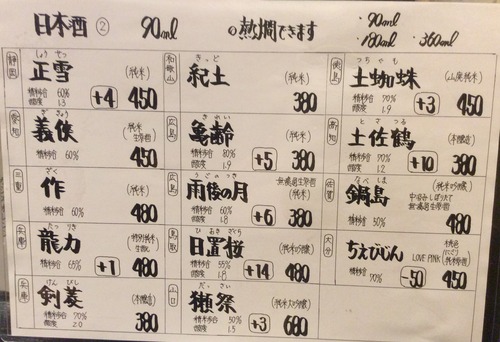 日本酒 ② 90ml
◎熱燗できます
・90ml
・180ml ・360ml
静岡
しょうせつ
正雪 (純米)
精米歩合 60%
酸度 1.3
+4 450
愛知
ぎきょう
義侠 (純米生原酒)
精米歩合 60%
450
三重
ざく
作 (純米)
精米歩合 60%
480
兵庫
たつりき
龍力 (特別純米生原酒)
精米歩合 65%
+1 480
兵庫
けんびし
剣菱 (本醸造)
精米歩合 70%
酸度 2.0
380
和歌山
きっど
紀土 (純米)
380
広島
きれい
亀齢 (純米)
精米歩合 80%
酸度 1.9
+5 380
広島
うごのつき
雨後の月 無濾過生原酒
(純米)
精米歩合 60%
酸度 1.8
+6 380
鳥取
ひおきざくら
日置桜 (純米吟醸)
精米歩合 55%
酸度 1.8
+14 480
山口
だっさい
獺祭 (純米大吟醸)
精米歩合 50%
酸度 1.5
+3 680
徳島
つちぐも
土蜘蛛 (山廃純米)
精米歩合 70%
酸度 1.9
+3 450
高知
とさつる
土佐鶴 (本醸造)
精米歩合 70%
酸度 1.2
+10 380
佐賀
なべしま
鍋島 (純米吟醸)
中汲みしぼりたて
無濾過生原酒
精米歩合 50%
480
大分
ちえびじん LOVE PINK
桃色にごり
(純米吟醸)
精米歩合 70%
-50 450